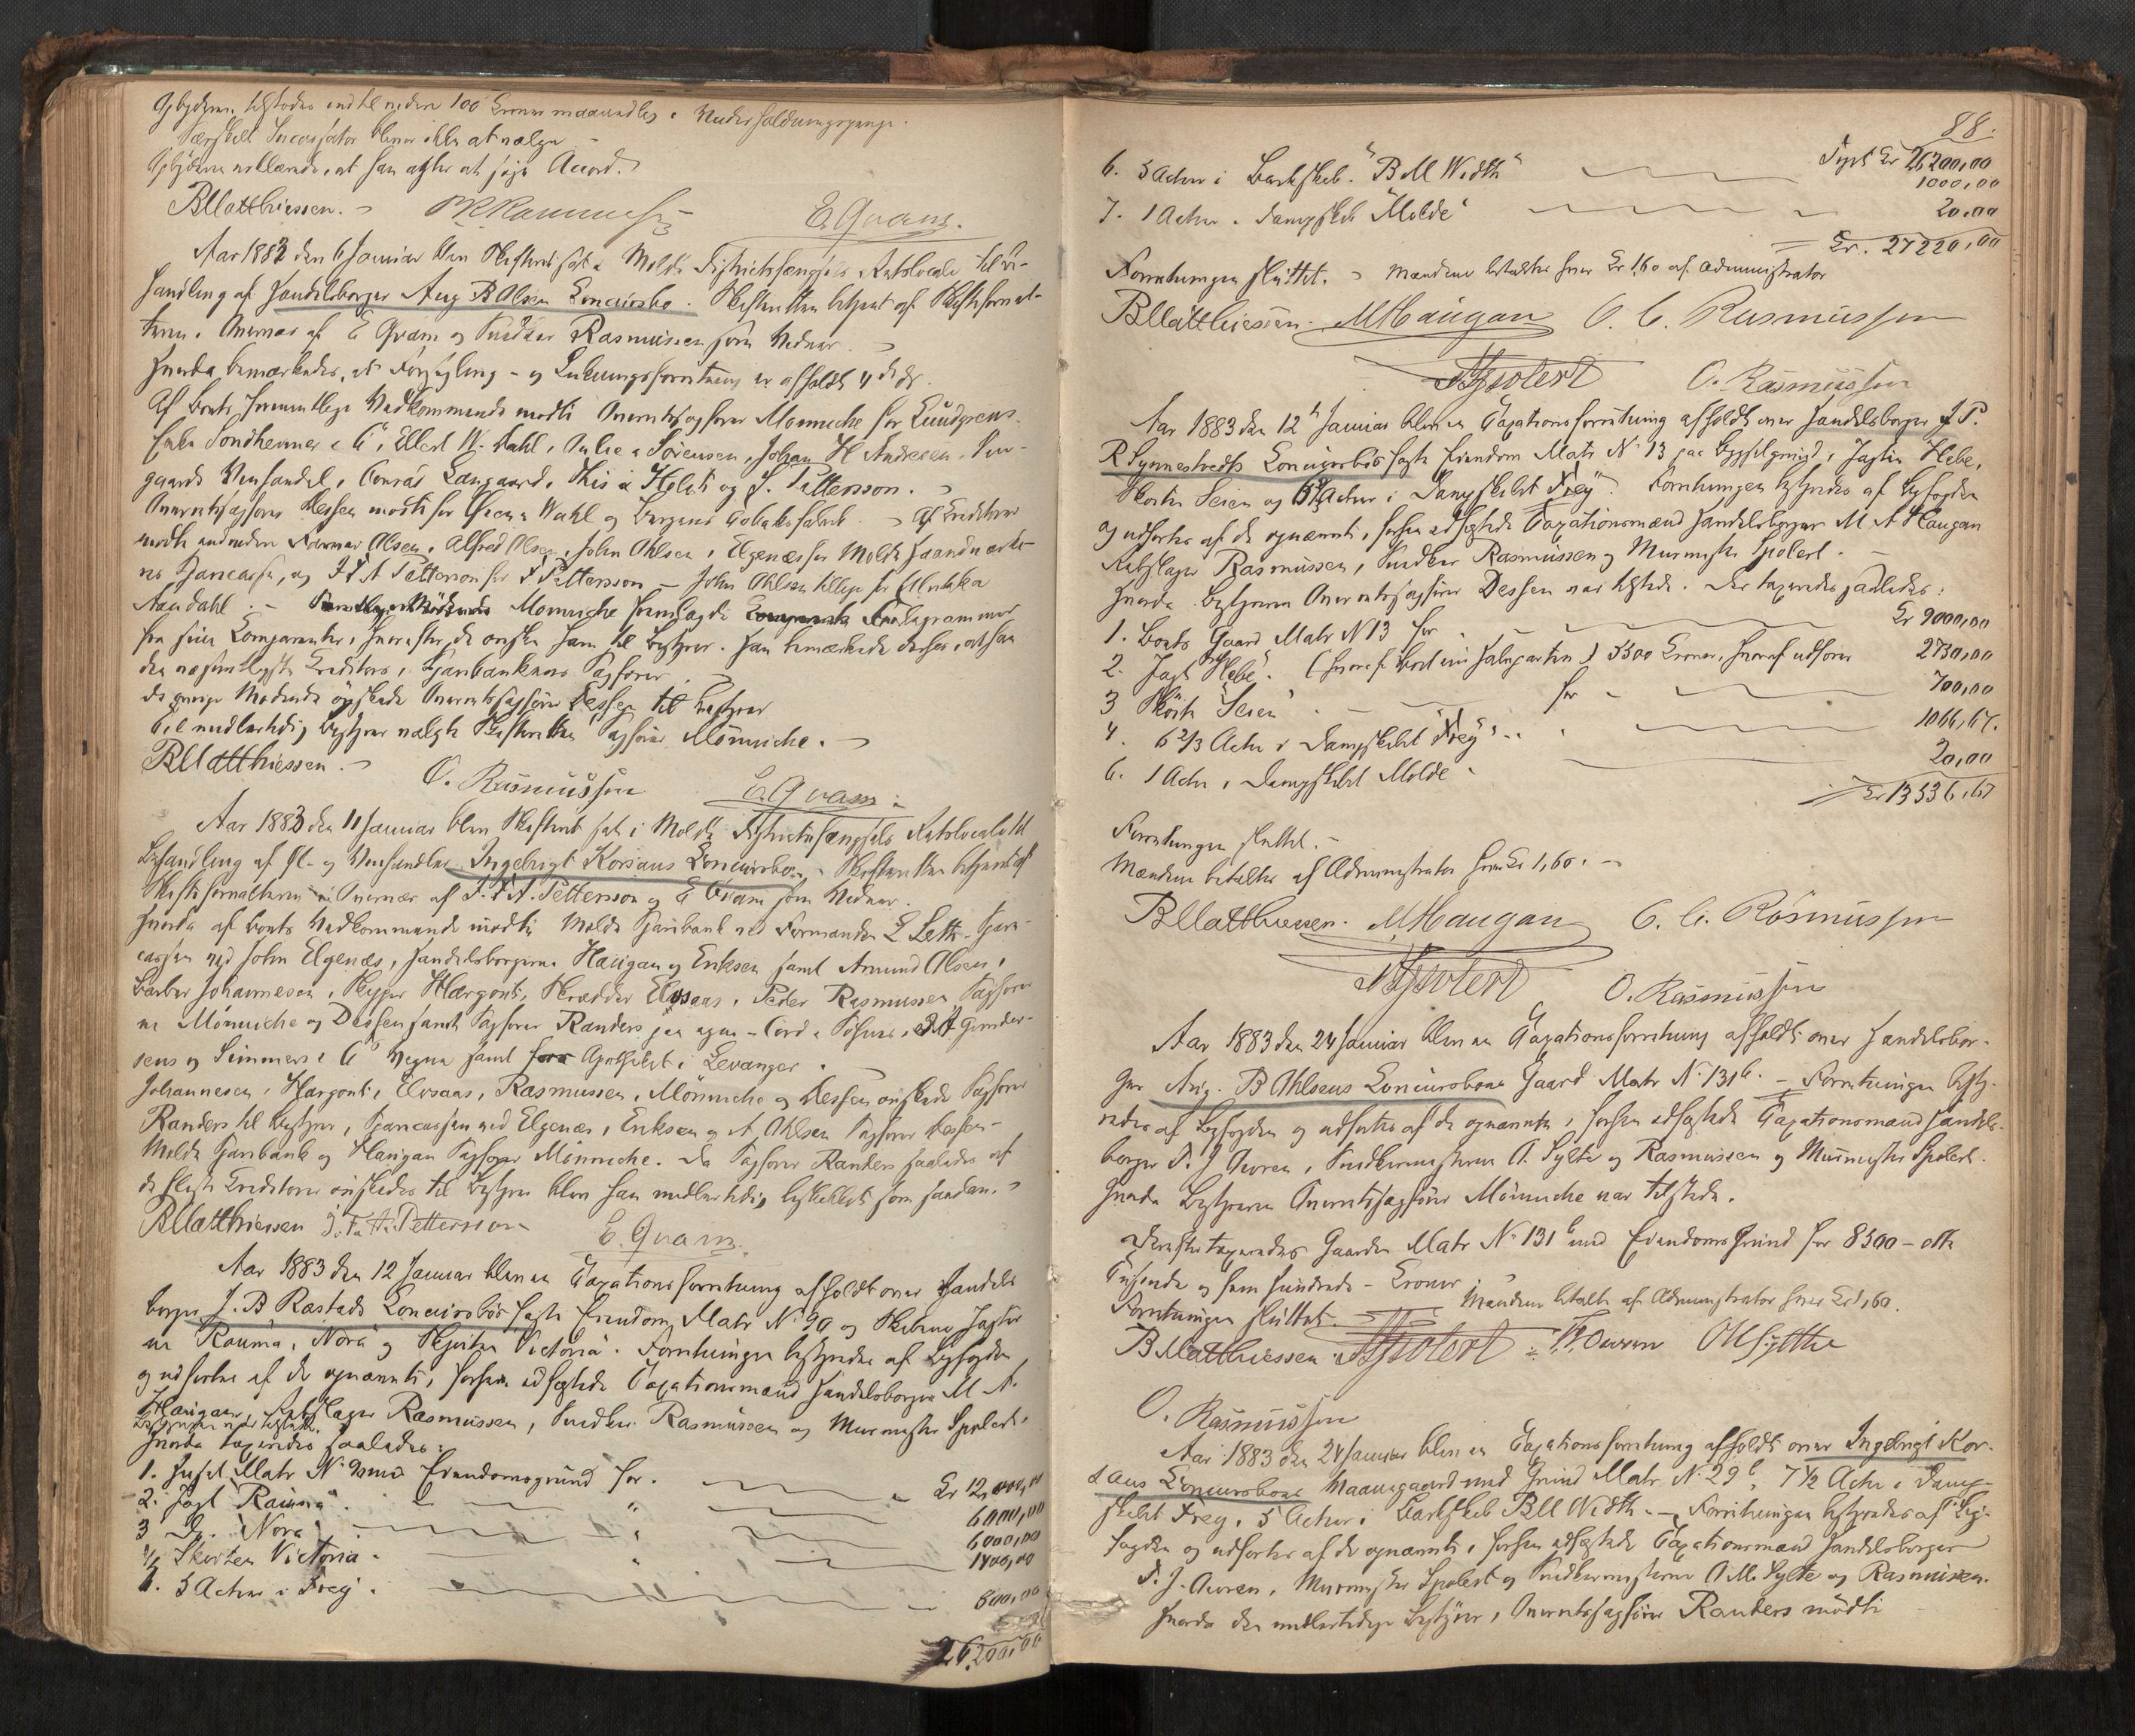 Gjeldens tilstodes indtil videre 100 Kroner maanedlig i Underholdningspenge.
Særskilt Incassator blev ikke at vælge
erklærede, at han agter at søge Accord.
BMatthiessen. E. Qvam.
Aar 1883 den 6 Januar blev Skifteret sat i Molde Distriktsfængsels Retslocale til Be-
handling af Handelsborger Aug B Olsen Concursbo. Skifteretten betjent af Skifteforval-
teren. Overvar af E Qvam og Snedker Rasmussen som Vidner.
Hvorda bemærkedes, at Forsegling- og Lukningsforretning er afholdt 4 ds.
Af Boets Vedkommende mødte Overretssagfører Mönniche for Lundgrens
Enke Sondheimer & Co, Ellert W. Dahl, Sörensen, Johan H Andresen,
gaards Conrad Langaard, Thiis & Holst og S. Pettersson.
Overretssagfører Dessen mødte for Wahl og Bergens Tobaksfabrik. Af Creditorer
mødte endvidere Olsen, Alfred Olsen, John Ohlsen, Elgenæs for Molde Haandværke-
res Sparecasse, og I F A Pettersson for S Pettersson - John Ohlsen tillige for
Aandahl. - Mönniche fremlagde Telegrammer
fra sine Comparenter, hvorefter de ønske ham til Bestyrer. Han bemærkede derhos, at han
Creditors, Sparebankens Sagfører
de øvrige Mødende ønskede Overretssagfører Dessen til Bestyrer
Til midlertidig Bestyrer valgte Skifteretten Sagfører Mönniche.
BMatthiessen.
O. Rasmussen E. Qvam
Aar 1883 den 11 Januar blev Skifteret sat i Molde Distriktsfængsels Retslocale til
Behandling af Øl- og Vinhandler Ingebrigt Korsans Concursbo. - Skifteretten betjent af
Skifteforvalteren i Overvær af I. F. A. Pettersson og E Qvam som Vidner.
Hvorda af Boets Vedkommende mødte Molde Sparebank ved Formanden Spare-
cassen ved John Elgenæs, Handelsborgerne Haugan og Eriksen samt Amund Olsen,
Barber Johannesen, Skipper Hargout, Skrædder Elvsaas, Peder Rasmussen Sagførere-
ne Mönniche og Dessen samt Sagfører Randers paa egne -
sens og Simmers & Co Vegne samt Apotheket i Levanger.
Johannesen, Hargout, Elvsaas, Rasmussen, Mönniche og Dessen ønskede Sagfører
Randers til Bestyrer, Sparecassen ved Elgenæs, Eriksen og A Ohlsen Sagfører Dessen -
Molde Sparebank og Haugan Sagfører Mönniche. Da Sagfører Randers saaledes af
de fleste Creditorer ønskedes til Bestyrer blev han midlertidig beskikket som saadan.
BMatthiessen I. F. A. Pettersson E. Qvam.
Aar 1883 den 12 Januar blev en Taxationsforretning afholdt over Handels-
borger J. B Rastads Concursbos faste Eiendom Matr No 90 og Skibene Jagter-
ne Rauma, Nora og Skøiten Victoria. Forretningen bestyredes af Byfogden
og udførtes af de opnævnte, forhen edfæstede Taxationsmænd Handelsborger M A
Haugan, Rebslager Rasmussen, Snedker Rasmussen og Murmester Spolert.
Bestyreren var tilstede.
Hvorda taxeredes saaledes:
1. Huset Matr No 90 med Eiendomsgrund for. Kr 12,000,00
2. Jagt "Rauma". " 6000,00
3 Do. "Nora" " 6000,00
4 Skøiten Victoria. " 1400,00
5 Actier i Frey. 600,00
26,200,00
88.
Flyt Kr 26200,00
6. 5 Actier i Barkskib. "B M Width" 1000,00
7. 1 Actie. Dampskib "Molde" 20,00
Kr. 27220,00
Forretningen sluttet. Mændene betaltes hver Kr 1,60 af Administrator
BMatthiessen. MAHaugan O. C. Rasmussen
Spolert O. Rasmussen
Aar 1883 den 12te Januar blev en Taxationsforretning afholdt over Handelsborger J P.
R Synnestvedts Concursbos faste Eiendom Matr No 13 paa Bygselgrund, Jagten Hebe,
Skøiten Seien og 6 2/3 Actier i Dampskibet "Frey". Forretningen bestyredes af Byfogden
og udførtes af de opnævnte, forhen edfæstede Taxationsmænd Handelsborger M A Haugan
Rebslager Rasmussen, Snedker Rasmussen og Murmester Spolert. -
Hvorda Bestyreren Overretssagfører Dessen var tilstede. Der taxeredes saaledes:
1. Boets Gaard Matr N 13 for Kr 9000,00
2. Jagt "Hebe". (hvoraf Boet eier Halvparten) 5500 Kroner, hvoraf udfører 2750,00
3 Skøite "Seien" for 700,00
4. 6 2/3 Actier i Dampskibet "Frey" 1066,67.
6. 1 Actie, Dampskibet Molde. 20,00
Kr 13536,67
Forretningen sluttet. -
Mændene betaltes af Administrator hver Kr 1,60. -
BMatthiessen. MAHaugan O. C. Rasmussen
Spolert O. Rasmussen
Aar 1883 den 24 Januar blev en Taxationsforretning afholdt over Handelsbor-
ger Aug. B Ohlsens Concursboes Gaard Matr No 131 b. - Forretningen besty-
redes af Byfogden og udførtes af de opnævnte, forhen edfæstede Taxationsmænd Handels-
borger P. J Owren, Snedkermesterne A. Sylte og Rasmussen og Murmester Spolert.
Hvorda Bestyreren Overretssagfører Mönniche var tilstede.
Derefter taxeredes Gaarden Matr No 131 b med Eiendomsgrund for 8500 - otte
Tusinde og fem hundrede - Kroner.
Forretningen sluttet. Mændene betalte af Administrator hver Kr 1,60.
BMatthiessen Spolert Owren OMSylthe
O. Rasmussen
Aar 1883 den 24 Januar blev en Taxationsforretning afholdt over Ingebrigt Kor-
sans Concursboes Vaaningsgaard med Grund Matr No 29 b, 7 1/2 Actie i Damp-
skibet Frey, 5 Actier i Barkskib B M Width. - Forretningen bestyredes af By-
fogden og udførtes af de opnævnte, forhen edfæstede Taxationsmænd Handelsborger
P. J. Owren, Murmester Spolert og Snedkermesterne O M. Sylte og Rasmussen.
Hvorda den midlertidige Bestyrer, Overretssagfører Randers mødte